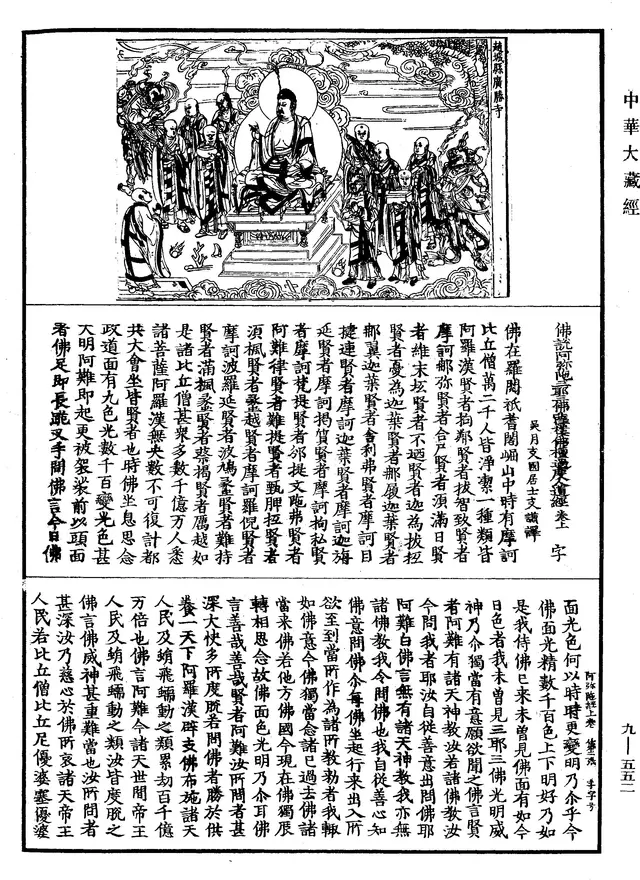 中華大藏經
趙城縣廣勝寺
佛說阿彌陀三耶三佛薩樓佛檀過度人道經卷上 字
吳月支國居士支謙譯
佛在羅閱祇耆闍崛山中時有摩訶
比丘僧萬二千人皆淨潔一種類皆
阿羅漢賢者拘鄰賢者拔智致賢者
摩訶那彌賢者合尸賢者須滿日賢
者維末坻賢者不迺賢者迦為拔坻
賢者憂為迦葉賢者那履迦葉賢者
那翼迦葉賢者舍利弗賢者摩訶目
揵連賢者摩訶迦葉賢者摩訶迦旃
延賢者摩訶揭質賢者摩訶拘私賢
者摩訶梵提賢者邠提文陁弗賢者
阿難律賢者難提賢者𦤎脾抵賢者
須楓賢者蠡越賢者摩訶羅倪賢者
摩訶波羅延賢者波鳩蠡賢者難持
賢者滿楓蠡賢者蔡揭賢者厲越如
是諸比丘僧甚衆多數千億万人悉
諸菩薩阿羅漢無央數不可復計都
共大會坐皆賢者也時佛坐息思念
政道面有九色光數千百變光色甚
大明阿難即起更被袈裟前以頭面
著佛足即長跪叉手問佛言今日佛
面光色何以時時更變明乃尒乎今
佛面光精數千百色上下明好乃如
是我侍佛已來未曾見佛面有如今
日色者我未曾見三耶三佛光明威
神乃尒獨當有意願欲聞之佛言賢
者阿難有諸天神教汝若諸佛教汝
今問我者耶汝自從善意出問佛耶
阿難白佛言無有諸天神教我亦無
諸佛教我令問佛也我自從善心知
佛意問佛尒每佛坐起行來出入所
欲至到當所作為諸所教勑者我輒
如佛意今佛獨當念諸已過去佛諸
當來佛若他方佛國今現在佛獨展
轉相思念故佛面色光明乃尒耳佛
言善哉善哉賢者阿難汝所問者甚
深大快多所度脫若問佛者勝於供
養一天下阿羅漢辟支佛布施諸天
人民及蜎飛蠕動之類累劫百千億
万倍也佛言阿難今諸天世間帝王
人民及蜎飛蠕動之類汝皆度脫之
佛言佛威神甚重難當也汝所問者
甚深汝乃慈心於佛所哀諸天帝王
人民若比丘僧比丘尼優婆塞優婆
九—五五二